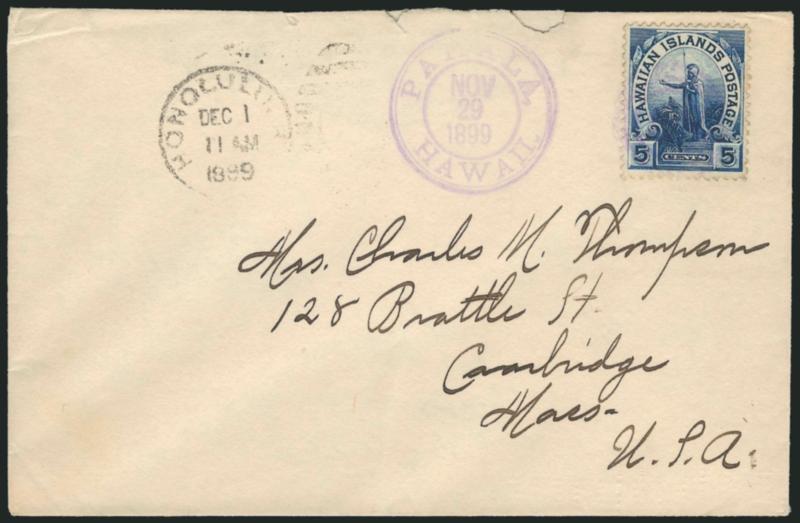 HONOLULU
DEC 1
11 AM
1899
PAHALA
NOV
29
1899
HAWAII.
HAWAIIAN ISLANDS POSTAGE
5 CENTS 5
Mrs. Charles M. Thompson
128 Brattle St.
Cambridge
Mass-
U.S.A.